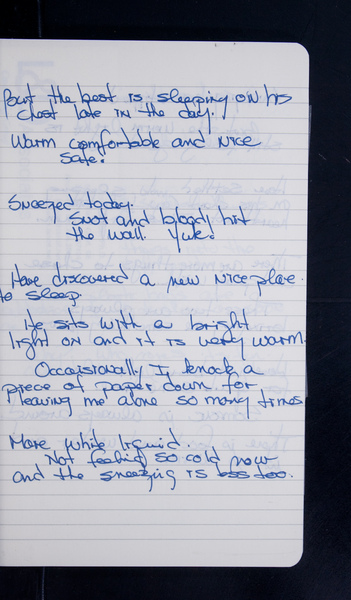 But the best is sleeping on his
chest late in the day.
Warm comfortable and nice
safe.
Sneezed today.
Snot and blood, hit
the wall. Yuk!
Have discovered a new nice place
to sleep.
He sits with a bright
light on and it is very warm.
Occasionally I knock a
piece of paper down for
leaving me alone so many times
More white liquid.
Not feeling so cold now
and the sneezing is less too.